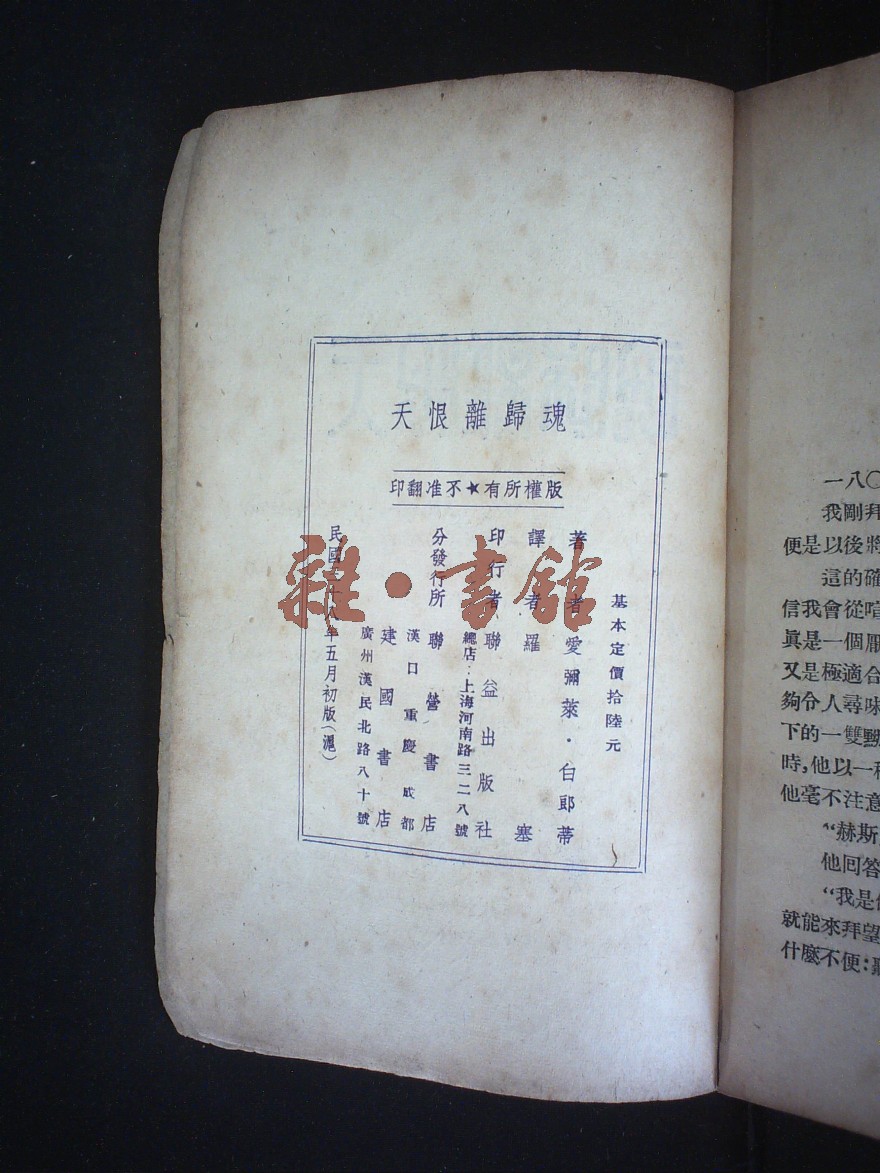 魂歸離恨天
版權所有★不准翻印
基本定價拾陸元
著者愛彌萊·白郎蒂
譯者羅塞
印行者聯益出版社
總店:上海河南路三二八號
分發行所聯營書店
漢口重慶成都
建國書店
廣州漢民北路八十號
民國三十八年五月初版(滬)
雜·書館
一八〇
我剛拜
便是以後將
這的確
信我會從喧
眞是一個厭
又是極適合
夠令人尋味
下的一雙黝
時,他以一種
他毫不注意
“赫斯
他回答
“我是
就能來拜望
什麼不便: